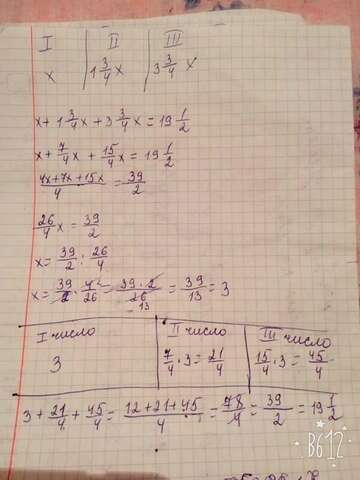 I II III
x 1 3/4 x 3 3/4 x
x + 1 3/4 x + 3 3/4 x = 19 1/2
x + 7/4 x + 15/4 x = 19 1/2
(4x+7x+15x)/4 = 39/2
26/4 x = 39/2
x = 39/2 : 26/4
x = 39/2 · 4/26 = (39·2)/26 = 39/13 = 3
13
I число II число III число
3 7/4 · 3 = 21/4 15/4 · 3 = 45/4
3 + 21/4 + 45/4 = (12+21+45)/4 = 78/4 = 39/2 = 19 1/2
B612